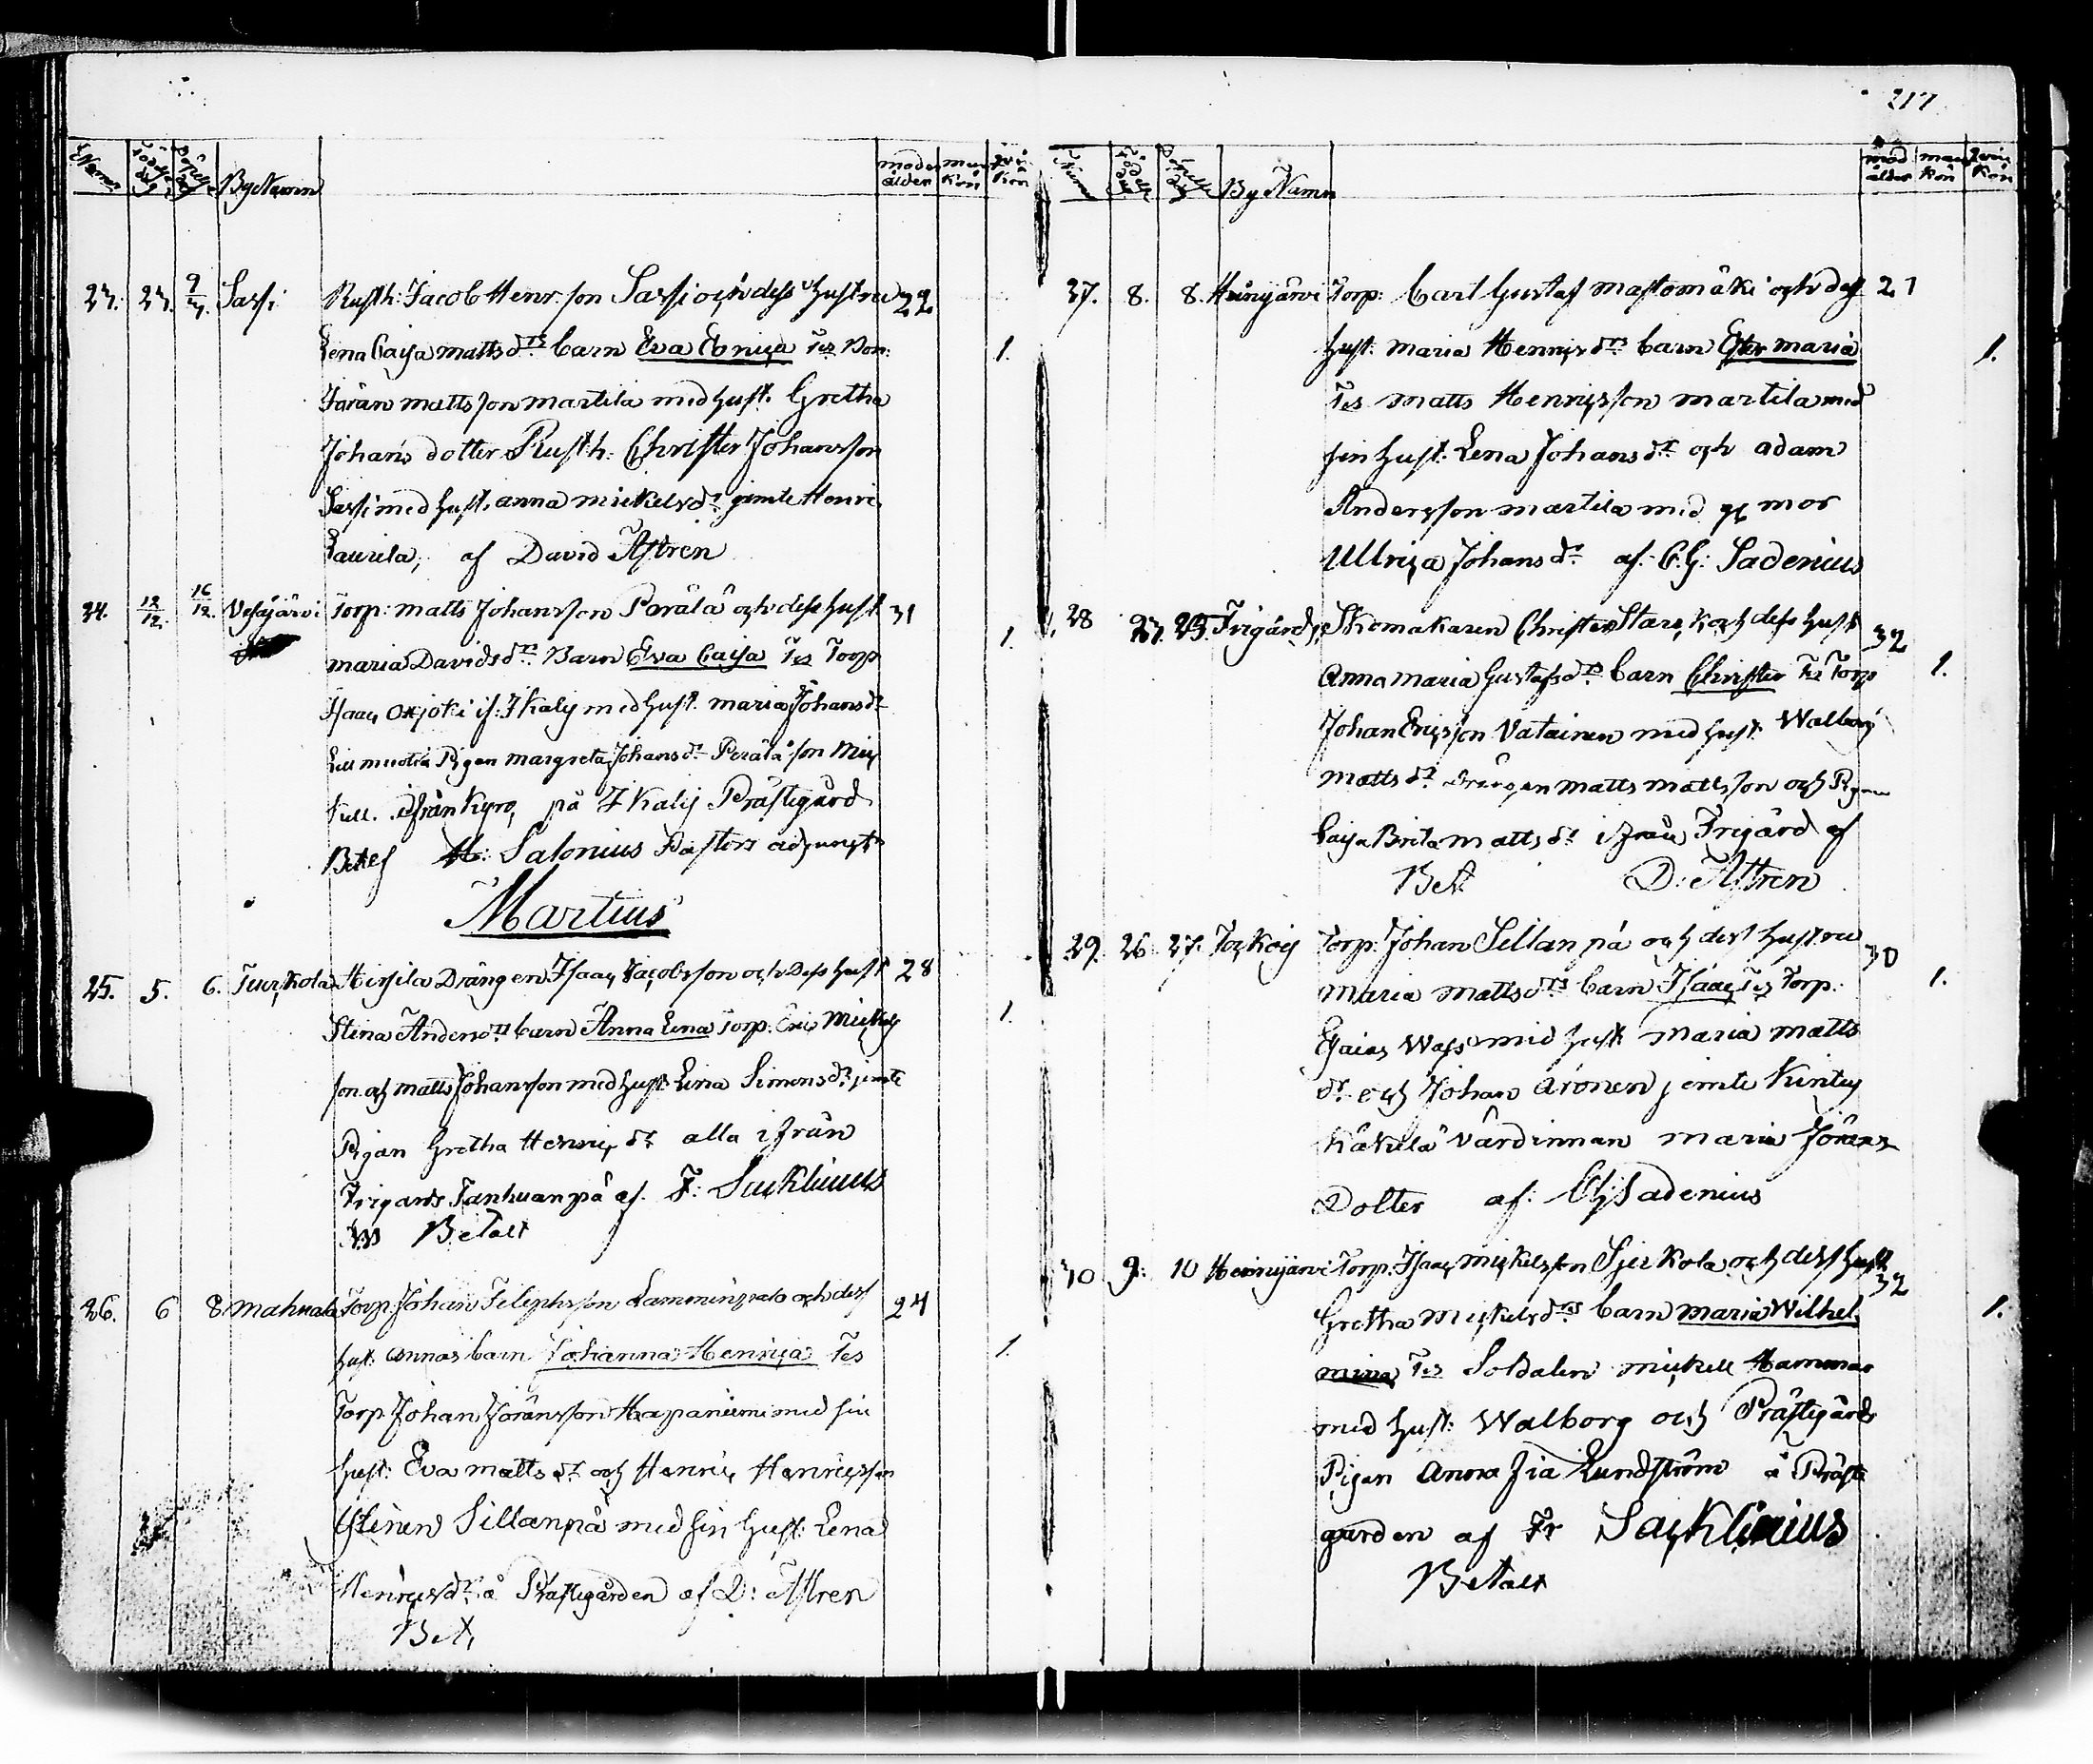 217
Numer Födelse dag Döpelse dag ByNamn moders ålder man kön qvin kön
23. 23. 2/3. Sassi Rusth: Jacob Henr.son Sassi och dess Hustru 22
Lena Caisa matts dr barn Eva Erica Tes Bon: 1.
Jöran matts son martila med hust. Gretha
Johans dotter Rusth: Christer Johansson
Sassi med hust. anna mickels dr jemte Henric
Laurila, af David Åstren
24. 12/12. 16/12. Vesajärvi Torp: matts Johansson Perälä och dess hust 31
maria Davids dr Barn Eva Caisa Tes Torp 1.
Isaac joki if: Ikalis med hust. maria Johans dr
Pigan margreta Johans dr Perälä son Mic
kell. ifrån Kyro, på Ikalis Prästegård
M: Salonius Pastors adjunct
Martius
25. 5. 6. Tuurkola Hirsila Drängen Isaac Jacobsson och Dess hust 28
Stina Anders dr barn Anna Lena Torp: Eric Mickels 1.
son och matts Johansson med hust Lena Simons dr jemte
Pigan Gretha Henric dr alla ifrån
Frigårds Tanhuanpä af. F: Sacklinius
Betalt
26. 6 8. mahnala Torp: Johan Johansson Lamminpalo och dess 24
hust: anna barn Johanna Henrica Tes 1.
Torp. Johan Jöransson Haapaniemi med sin
hust: Eva matts dr och Henric Henricsson
Sillanpä med sin hust: Lena
Henrics dr å Prästegården af D: Åstren
Bet,
Numer Födelse dag Döpelse dag By Namn mod ålder man kön qvin kön
27. 8. 8. Heinijärvi Torp: Carl Gustaf mastomäki och dess 21
hust: maria Henrics dr barn Ester maria 1.
Tes matts Henricsson martila med
sin hust: Lena Johans dr och adam
Andersson martila med mor
Ullrica Johans dr af: C.G: Sadenius
28 23. 25. Frigård, Skomakaren Christer Starck och dess hust 32
Anna maria Gustafs dr barn Christer Tes Torp 1.
Johan Ericsson Vatainen med hust Walborg
Matts dr Drängen matts mattsson och Pigan
Caisa Brita matts dr ifrån Frigård af
Bet D: Åstren
29. 26 27. Toskois Torp: Johan Sillanpä och dess hustru 30
Maria matts dr barn Isaac Tes Torp. 1.
Esaias Wass med hust maria matts
dr och Johan aronen jemte
Käkelä värdinnan maria Jörans
Dotter af: CG Sadenius
30 9: 10 Heinijärvi Torp: Isaac mickelsson Sjerkola och dess hust 32
Gretha mickels dr barn maria Wilhel 1.
mina, Tes Soldaten mickell Hammar
med hust: Walborg och Prästegårds
Pigan anna fia Lundström å Präste
gården af Fr Sacklinius
Betalt